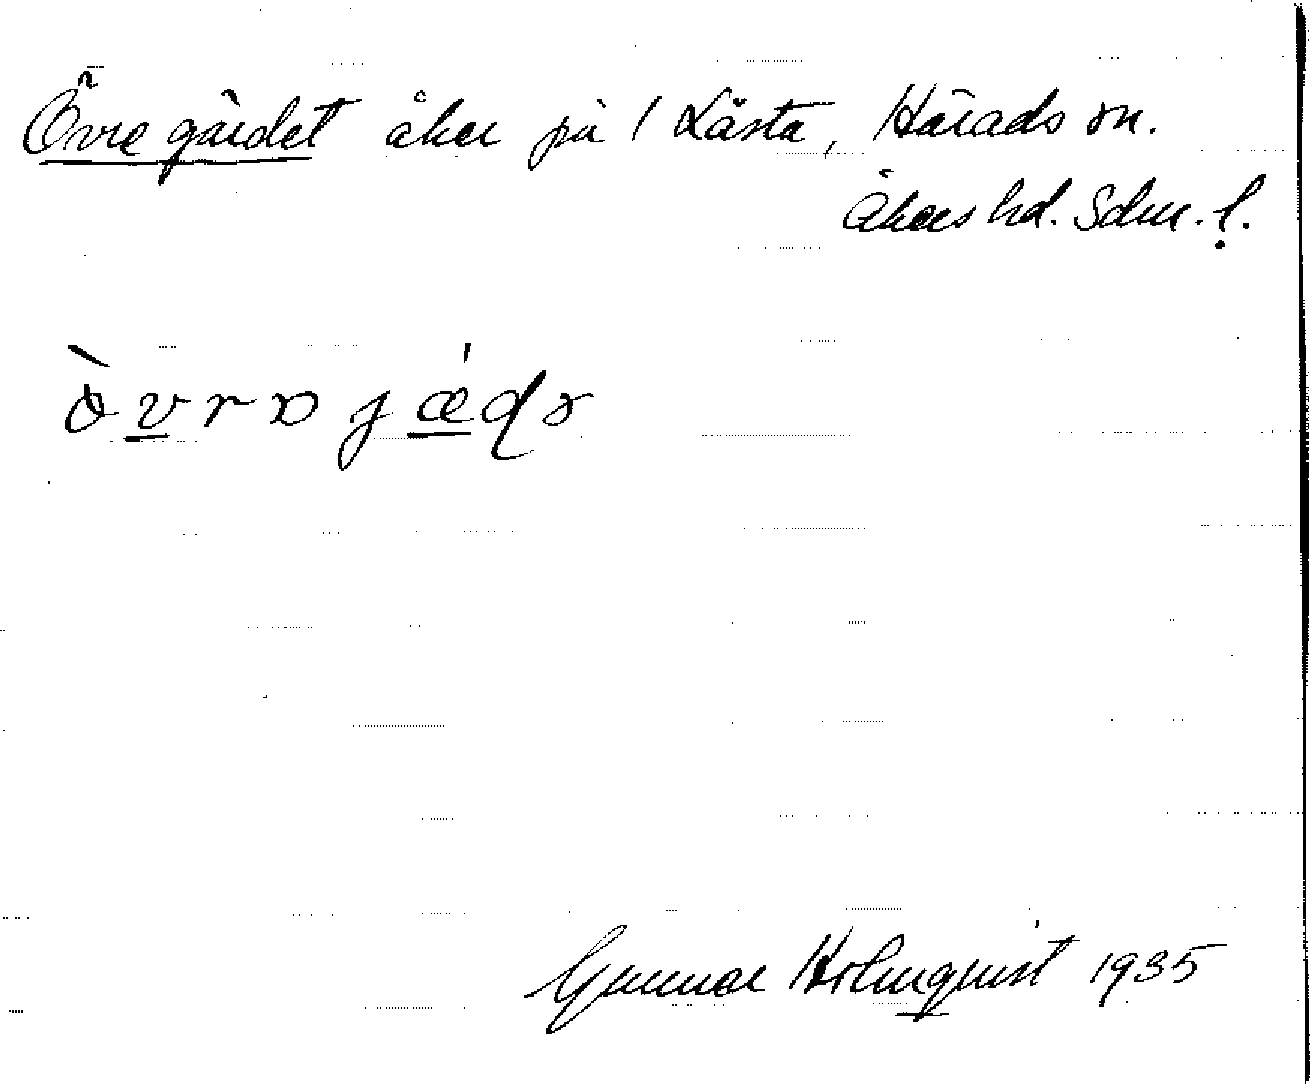 Övre gärdet åker på 1 Lästa, Härads sn.
Åkers hd. Sdm. l.
Gunnar Holmquist 1935